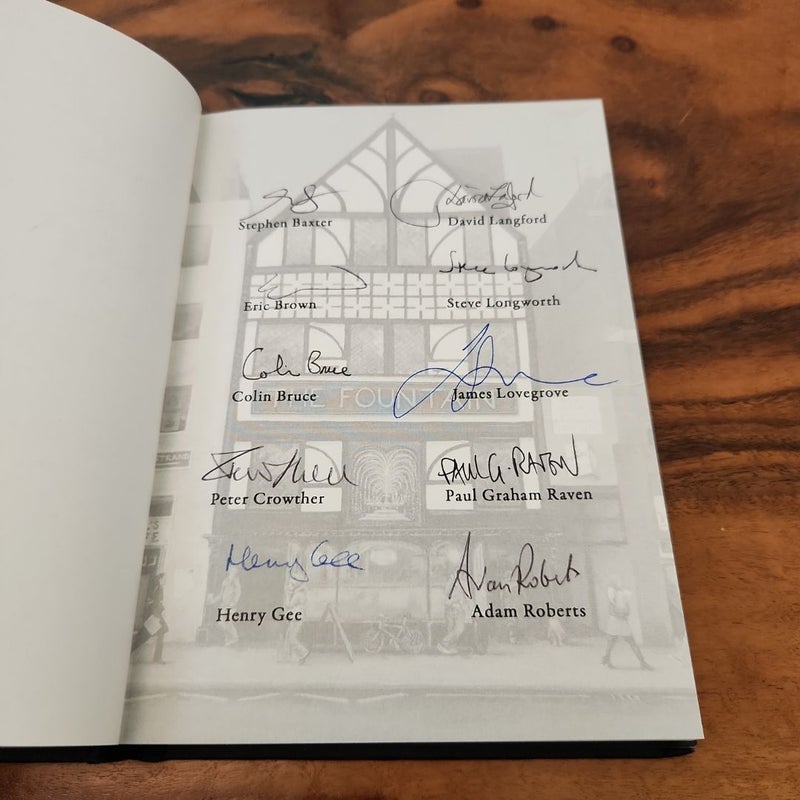 Stephen Baxter
David Langford
David Langford
Steve Longworth
Eric Brown
Steve Longworth
Colin Bruce
Colin Bruce
James Lovegrove
THE FOUNTAIN
STRAND
Peter Crowther
PAUL G. RAVEN
Paul Graham Raven
Henry Gee
Henry Gee
Adam Roberts
Adam Roberts